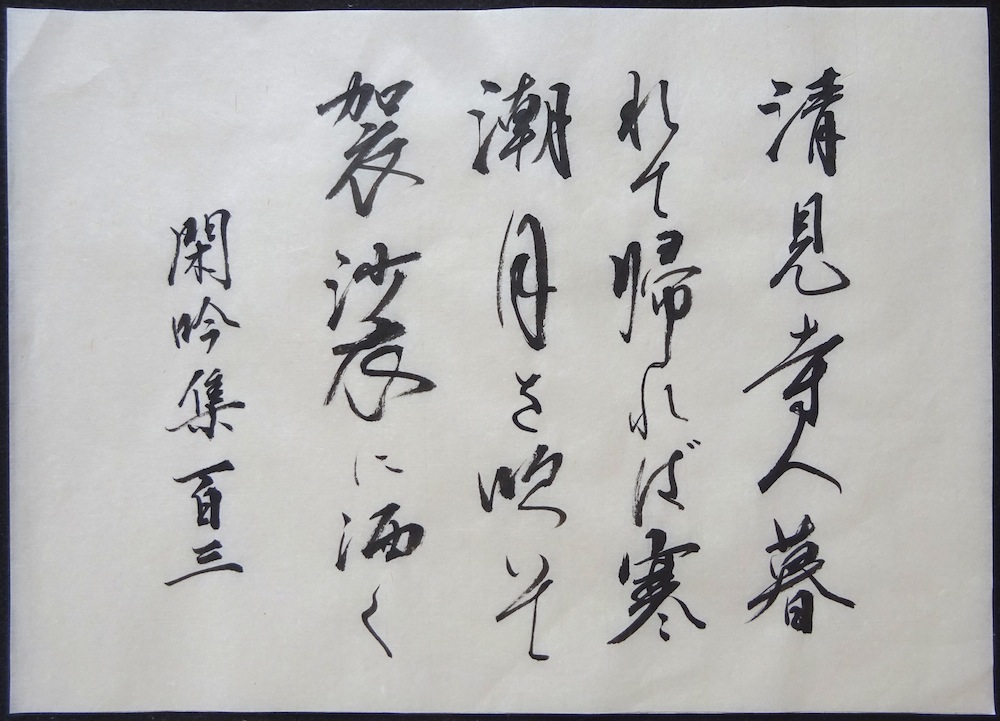 清見寺人暮
れて帰れば寒
潮月を吹いて
袈裟に洒く
閑吟集百三